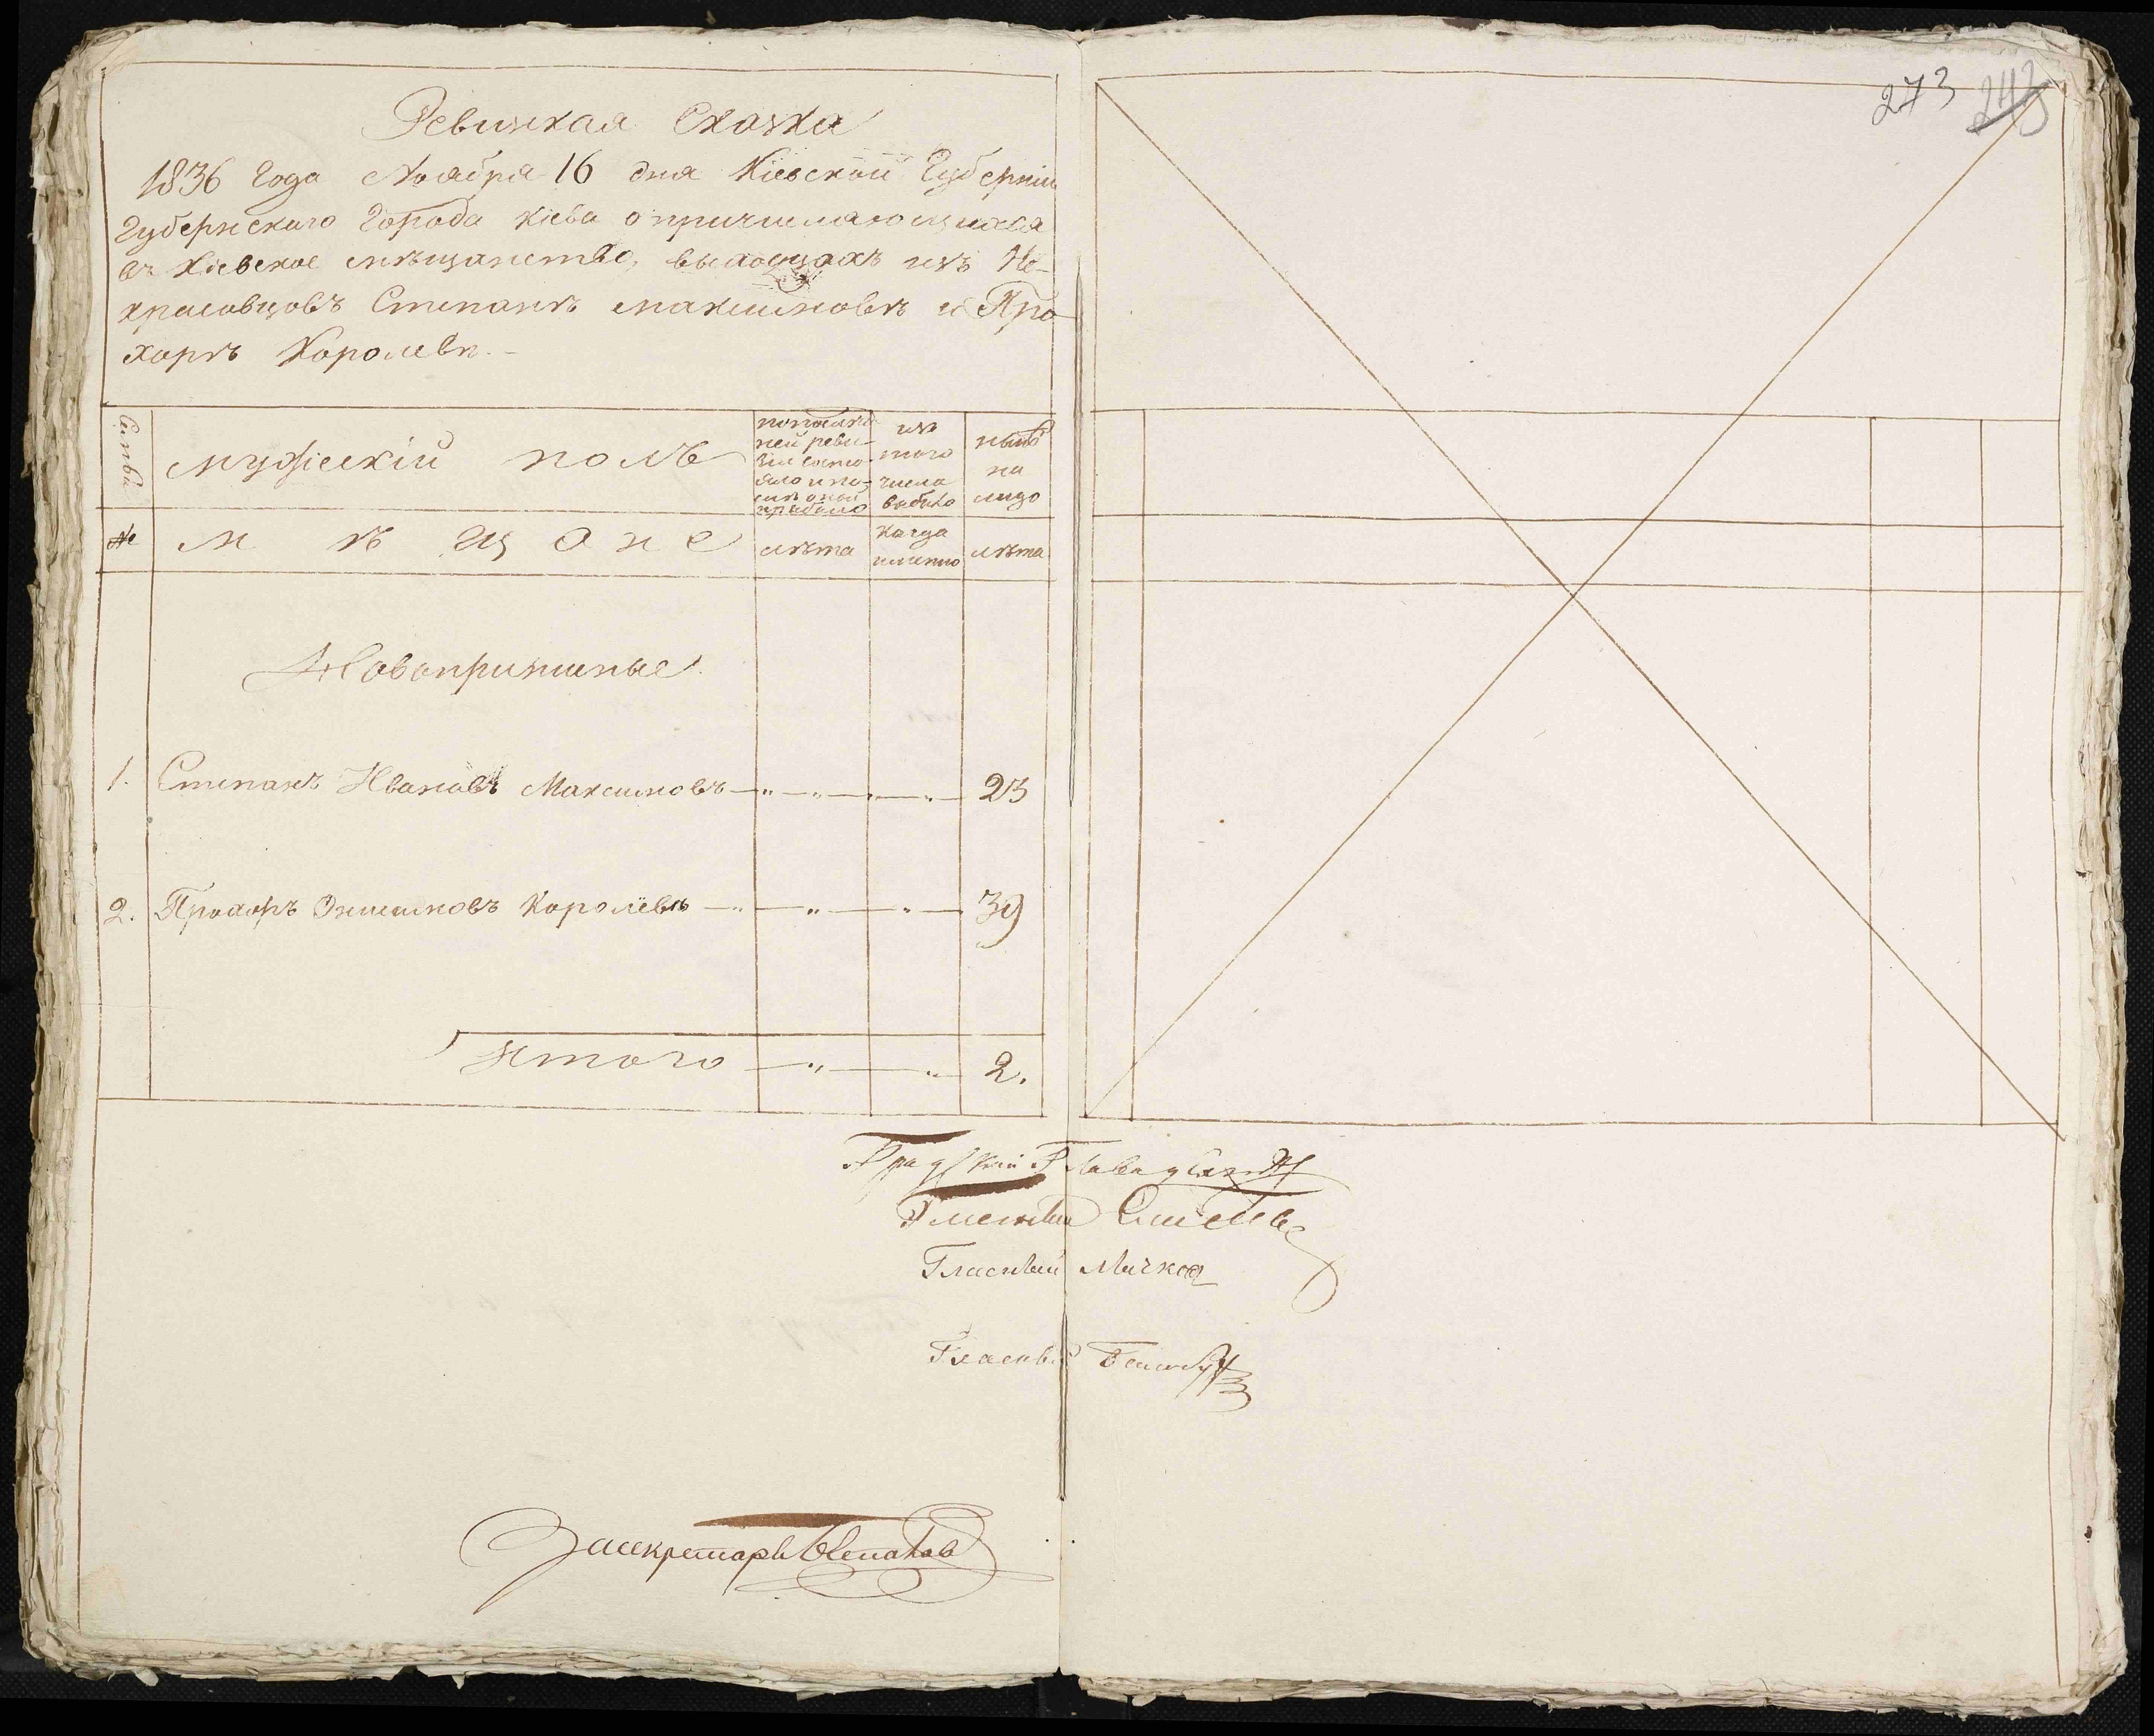 273 243
Ревизкая Сказка
1836 Года Ноября 16 дня Кіевской Губерніи
Губернского Города Кіева о причисляющихся
въ Кіевское мѣщанство, выходцахъ изъ Не-
красовцовъ Степанѣ Максимовѣ и Про
хорѣ Королевѣ.
Семьи
мужескій полъ
по послѣд
ней реви-
зіи состо-
яло и по-
слѣ оной
прибыло
изъ
того
числа
выбыло
нынѣ
на
лицо
№
мѣщане
лѣта
когда
именно
лѣта
Новопризшные
1. Степанъ Ивановъ Максимовъ 23
2. Прохоръ Онисимовъ Королевъ 39
Итого 2.
Градскій Глава
Гласный
Гласный Мичков
Гласный
За секретаря Степанов